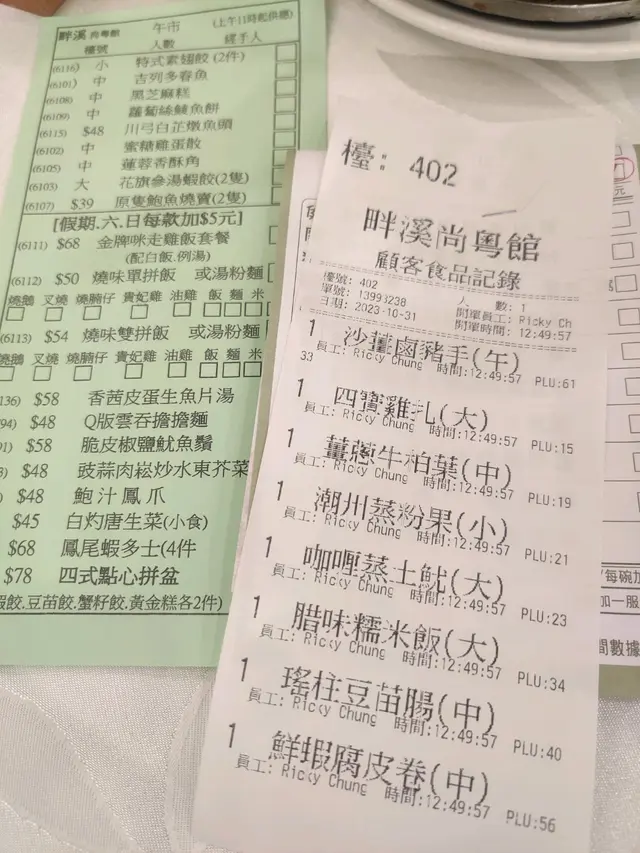 畔溪尚粵館 午市 (上午11時起供應)
檯號 人數 經手人
(6116) 小 特式素翅餃(2件)
(6101) 中 吉列多春魚
(6108) 中 黑芝麻糕
(6109) 中 蘿蔔絲鯪魚餅
(6115) $48 川弓白芷燉魚頭
(6102) 中 蜜糖雞蛋散
(6105) 中 蓮蓉香酥角
(6103) 大 花旗參湯蝦餃(2隻)
(6107) $39 原隻鮑魚燒賣(2隻)
[假期.六.日每款加$5元]
(6111) $68 金牌咪走雞飯套餐
(配白飯,例湯)
(6112) $50 燒味單拼飯 或湯粉麵
燒鵝 叉燒 燒腩仔 貴妃雞 油雞 飯 麵 米
(6113) $54 燒味雙拼飯 或湯粉麵
燒鵝 叉燒 燒腩仔 貴妃雞 油雞 飯 麵 米
136) $58 香茜皮蛋生魚片湯
94) $48 Q版雲吞擔擔麵
91) $58 脆皮椒鹽魷魚鬚
3) $48 豉蒜肉崧炒水東芥菜
) $48 鮑汁鳳爪
$45 白灼唐生菜(小食)
$68 鳳尾蝦多士(4件
$78 四式點心拼盆
蝦餃.豆苗餃.蟹籽餃.黃金糕各2件)
檯: 402
畔溪尚粵館
顧客食品記錄
檯號: 402 人 數: 1
單號: 13993238 開單員工: Ricky Ch
日期: 2023-10-31 開單時間: 12:49:57
1 沙薑鹵豬手(午)
員工: Ricky Chung 時間:12:49:57 PLU:61
33
1 四寶雞扎(大)
員工: Ricky Chung 時間:12:49:57 PLU:15
1 薑蔥牛柏葉(中)
員工: Ricky Chung 時間:12:49:57 PLU:19
1 潮州蒸粉果(小)
員工: Ricky Chung 時間:12:49:57 PLU:21
1 咖喱蒸土魷(大)
員工: Ricky Chung 時間:12:49:57 PLU:23
1 腊味糯米飯(大)
員工: Ricky Chung 時間:12:49:57 PLU:34
1 瑤柱豆苗腸(中)
員工: Ricky Chung 時間:12:49:57 PLU:40
1 鮮蝦腐皮卷(中)
員工: Ricky Chung 時間:12:49:57 PLU:56
元
/每碗加
加一服
間數據